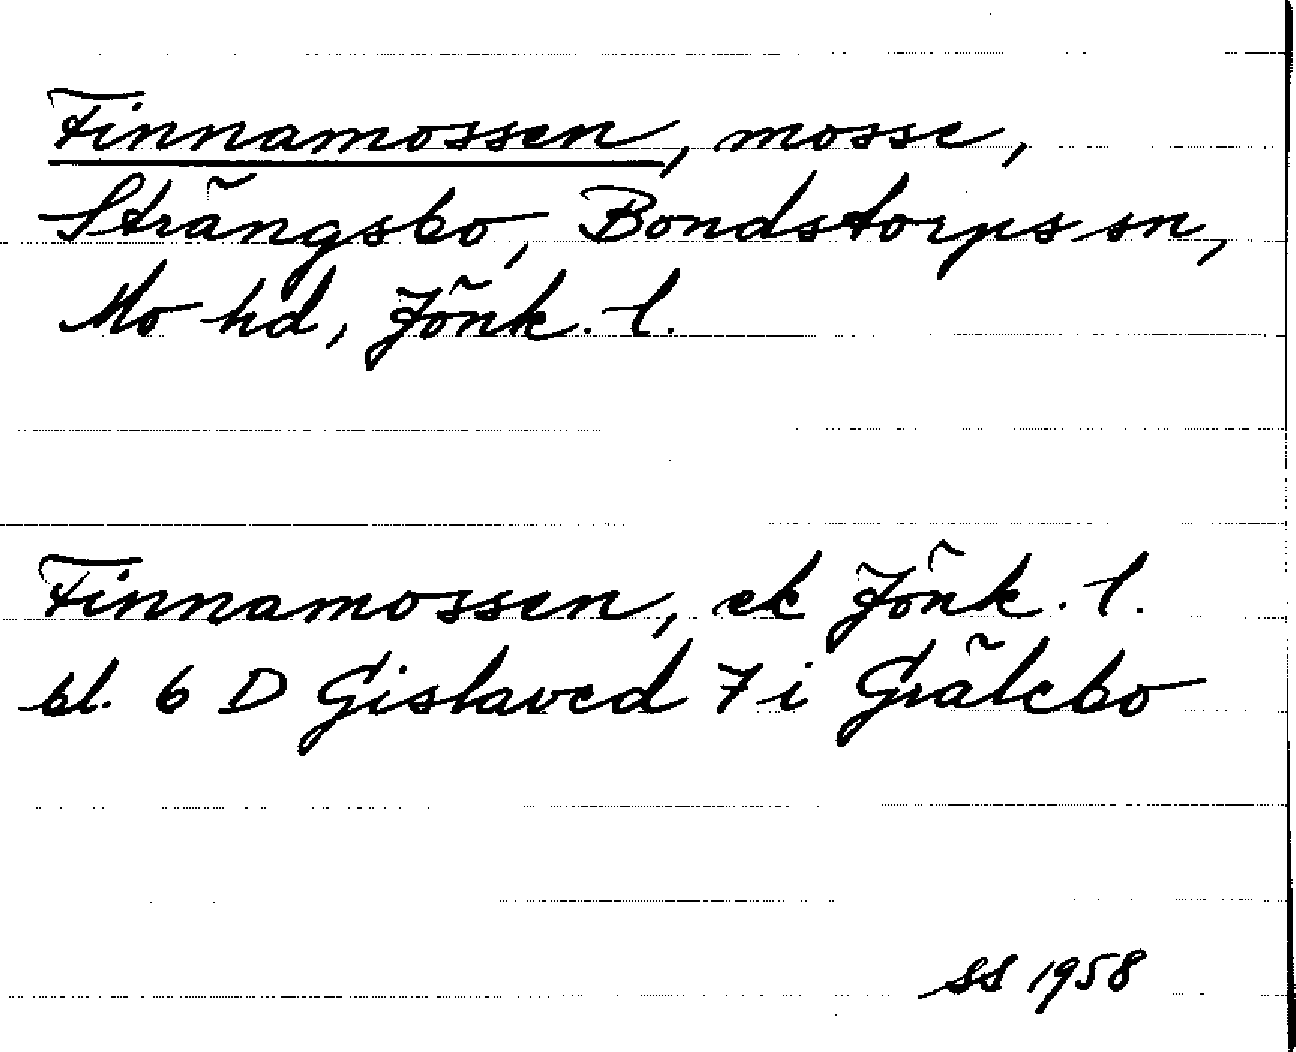 Finnamossen, mosse,
Strängsbo, Bondstorps sn,
Mo hd, Jönk. l.
Finnamossen, ek Jönk. l.
bl. 6 D Gislaved 7 i Grälebo
SS 1958